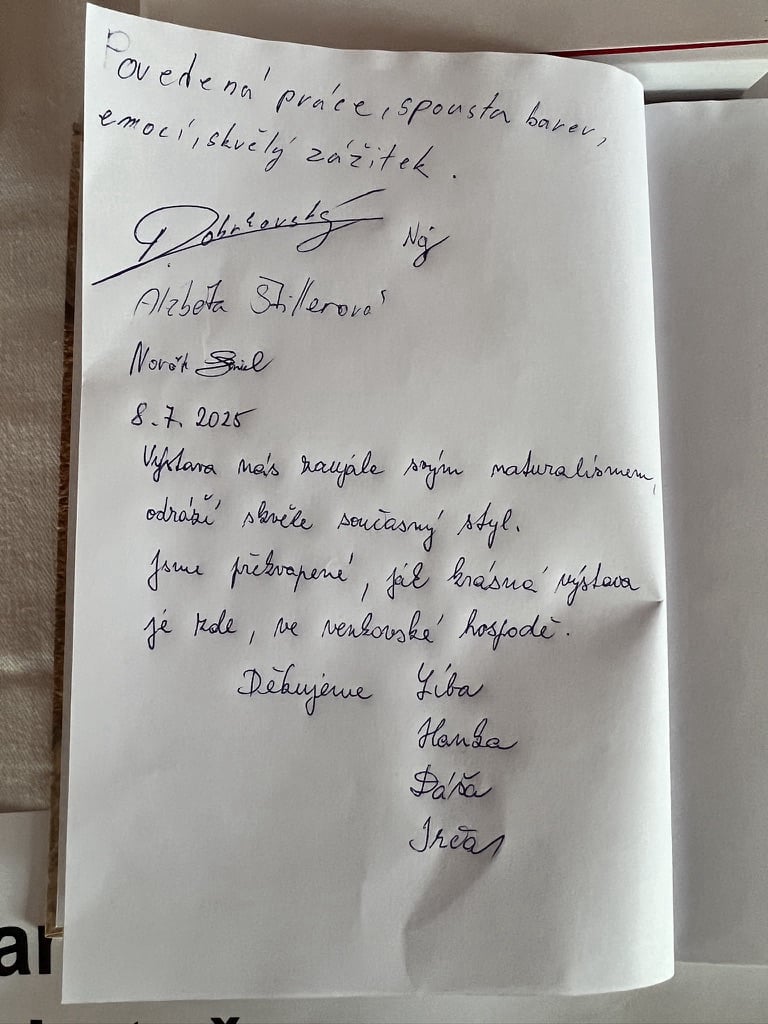 Povedená práce, spousta barev,
emocí, skvělý zážitek.
Alžběta Stillerová
Novák
8.7. 2025
Výstava nás zaujále svým naturalismem,
odráží skvěle současný styl.
Jsme překvapené, jak krásná výstava
je zde, ve venkovské hospodě.
Děkujeme Líba
Hanka
Dáša
Irča
ar